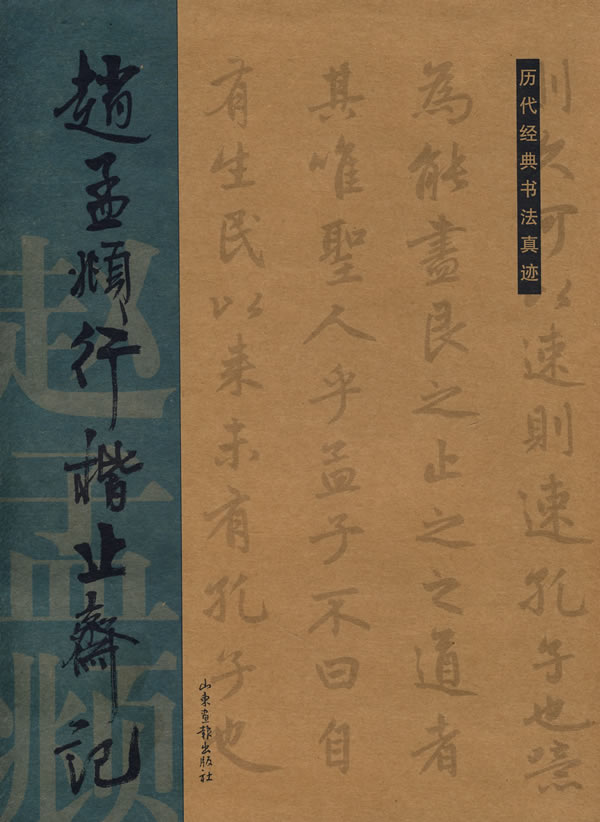 历代经典书法真迹
則久可以速則速孔子也噫
為能盡艮之止之之道者
其唯聖人乎孟子不曰自
有生民以来未有孔子也
山東畫報出版社
趙孟頫行楷止齋記
赵孟頫